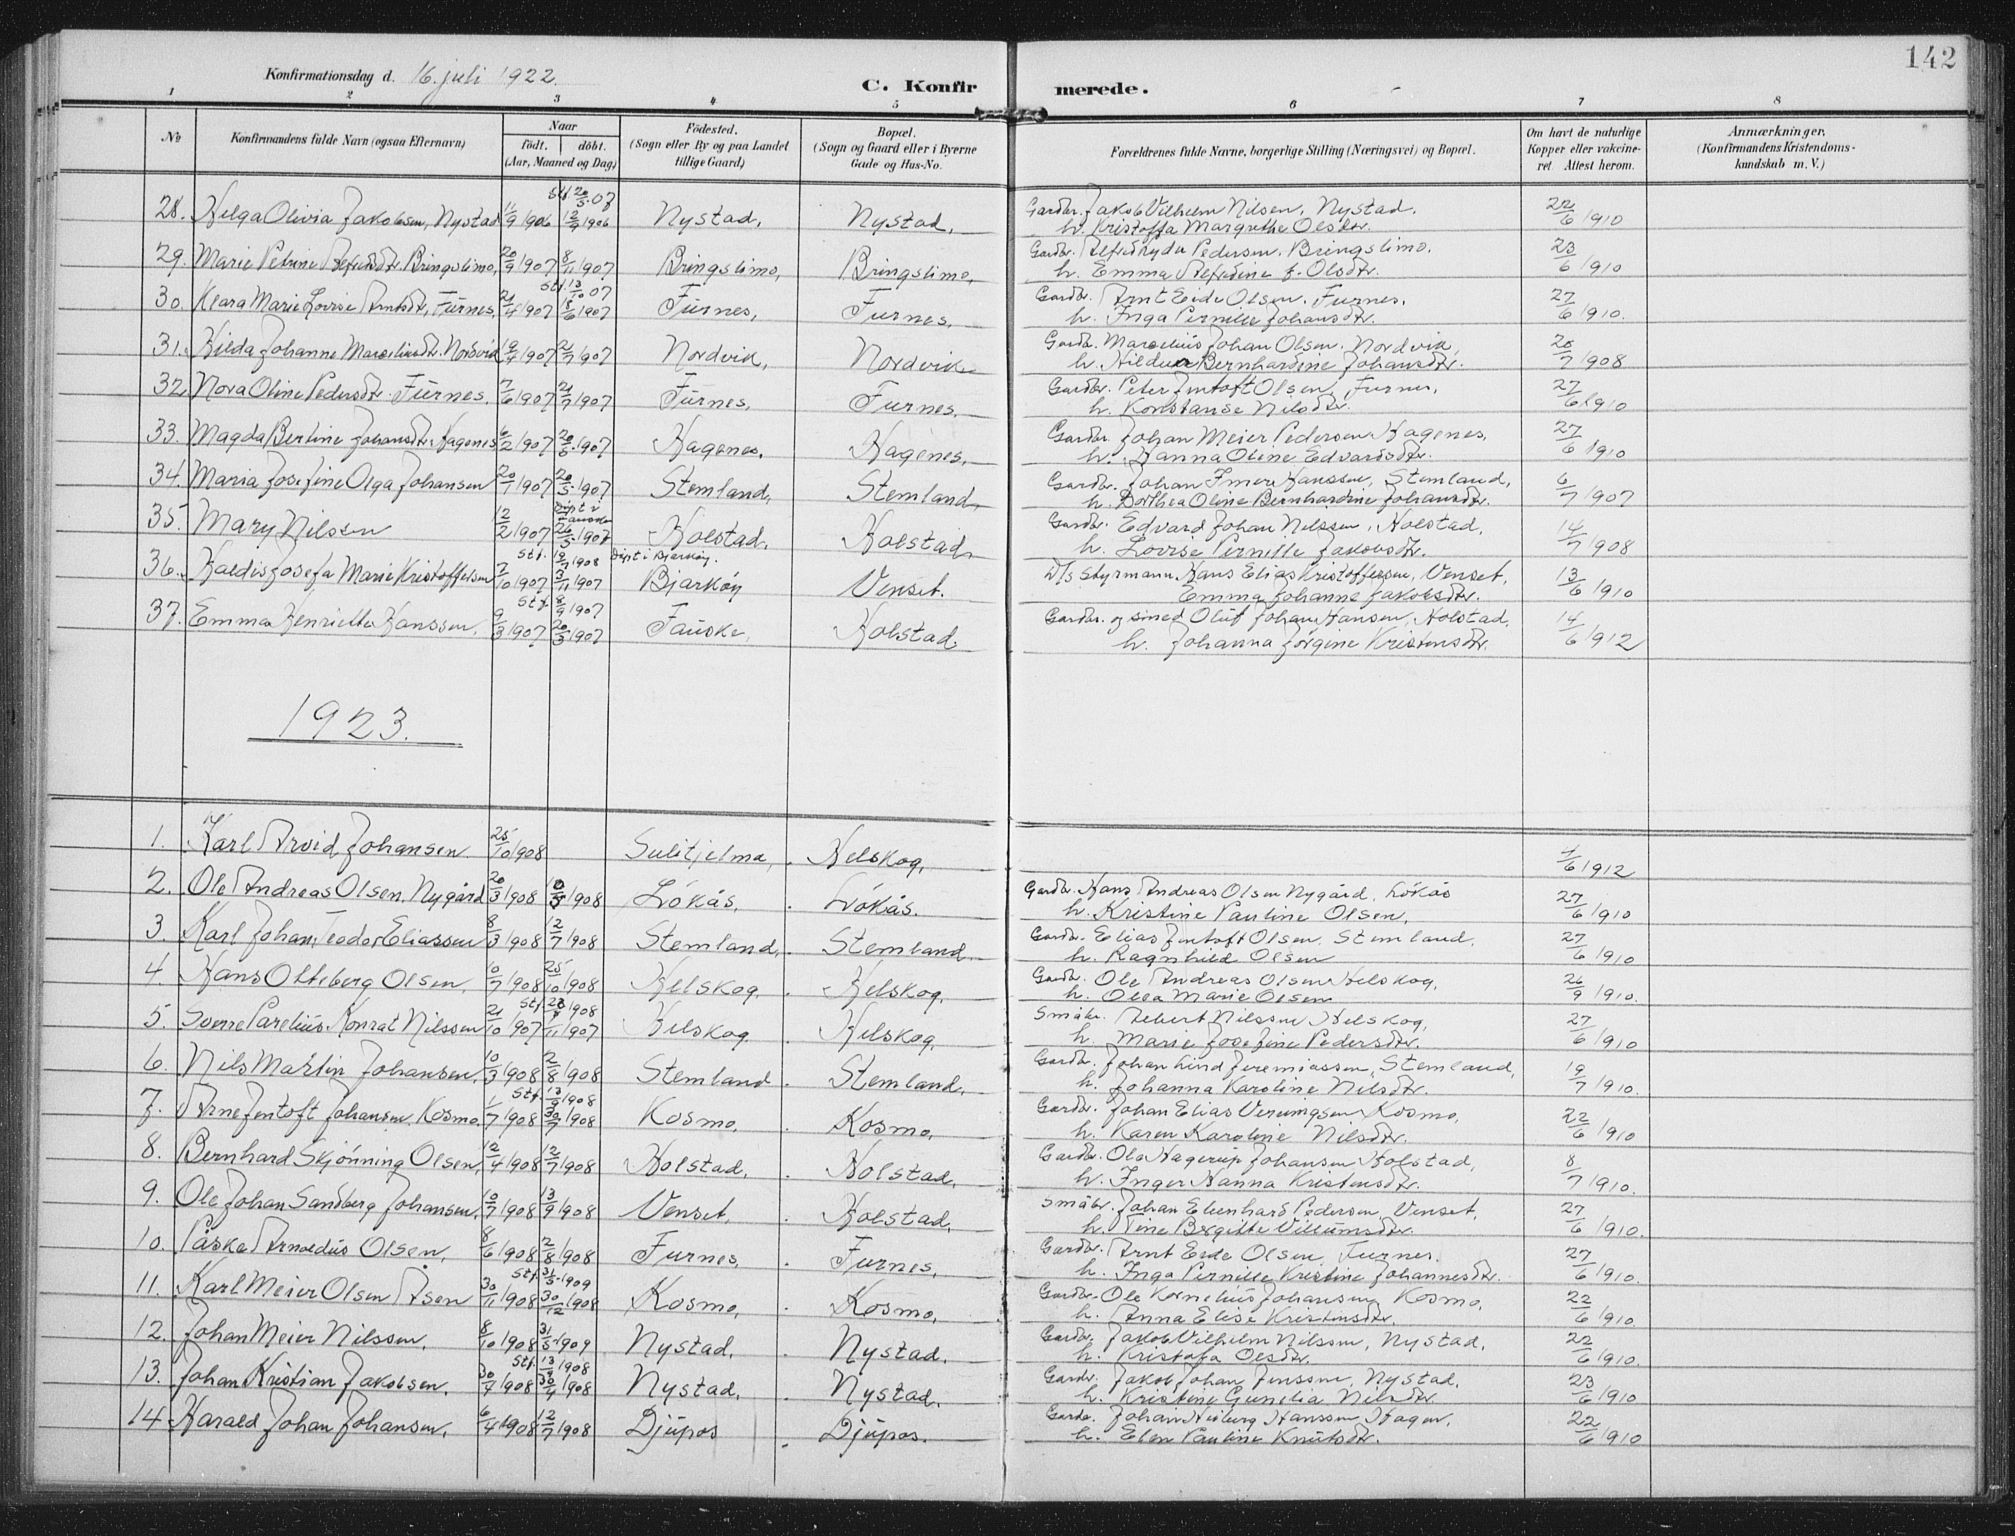 142
Konfirmationsdag d. 16. juli 1922. C. Konfirmerede.
1 2 3 4 5 6 7 8
No Konfirmandens fulde Navn (ogsaa Efternavn) Naar født. døbt. (Aar, Maaned og Dag) Fødested. (Sogn eller By og paa Landet tillige Gaard) Bopæl. (Sogn og Gaard eller i Byerne Gade og Hus-No. Forældrenes fulde Navne, borgerlige Stilling (Næringsvei) og Bopæl. Om havt de naturlige Kopper eller vaccineret. Attest herom. Anmærkninger. (Konfirmandens Kristendomskundskab m. V.)
28. Helga Olivia Jakobsen, Nystad 11/9 1906 Nystad, Nystad, Gardbr. Jakob Vilhelm Nilsen, Nystad. 22/6 1910
h. Kristoffa Margrethe Olsdtr.
29. Marie Petrine Alfredsdtr. Bringslimo, 20/9 1907 8/11 1907 Bringslimo, Bringslimo, Gardbr. Alfred Pedersen, Bringslimo. 23/6 1910
h. Emma Alfredine f. Olsdtr.
30. Klara Marie Lovise Arntsdtr, Furnes, 21/4 1907 Stf. 13/10 07 Furnes, Furnes, Gardbr. Arnt Eide Olsen, Furnes. 27/6 1910.
h. Inga Pernille Johansdtr.
31. Hilda Johanne Marseliusdtr. Nordvik 1907 21/7 1907 Nordvik, Nordvik Gardbr. Marselius Johan Olsen, Nordvik, 20/7 1908
h. Bernhardine Johansdtr.
32. Nora Oline Pedersdtr. Furnes. 7/6 1907 21/7 1907 Furnes, Furnes. Gardbr. Peter Jentoft Olsen, Furnes, 27/6 1910
h. Konstanse Nilsdtr.
33. Magda Berline Johansdtr. Hagenes 6/2 1907 20/5 1907 Hagenes. Hagenes, Gardbr. Johan Meier Pedersen Hagenes, 27/6 1910
h. Hanna Oline Edvardsdtr.
34. Maria Josefine Olga Johansen 20/1 1907 20/5 1907 Stemland, Stemland, Gardbr. Johan Hanssen, Stemland, 6/7 1907
h. Dorthea Oline Bernhardine Johansdtr.
35. Mary Nilsen 12/2 1907 Døpt i Fauske 26/5 1907 Holstad, Holstad, Gardbr. Edvard Johan Nilssen, Holstad, 14/7 1908
h. Lovise Pernille Jakobsdtr.
36. Haldis Josefa Marie Kristoffersen 7/10 1907 Stf. 1908 3/11 1907 Døpt i Bjarkøy. Bjarkøy Venset. D/s Styrmann Hans Elias Kristoffersen, Venset, 13/6 1910
Emma Johanne Jakobsdtr.
37. Emma Henriette Hanssen. 9/3 1907 Stf. 8/9 1907 20/5 1907 Fauske, Holstad Gardbr. og smed Oluf Johan Hansen, Holstad, 14/6 1912
h. Johanna Jørgine Kristensdtr.
1923.
1. Karl Arvid Johansen 25/10 1908 Sulitjelma, Helskog, 1/6 1912
2. Ole Andreas Olsen, Nygård 20/3 1908 1908 Løkås, Løkås. Gardbr. Hans Andreas Olsen Nygård, Løkås 27/6 1910
h. Kristine Pauline Olsen,
3. Karl Johan Teodor Eliassen 8/3 1908 12/7 1908 Stemland, Stemland. Gardbr. Elias Jentoft Olsen, Stemland, 27/6 1910
h. Ragnhild Olsen
4. Hans Olteberg Olsen, 10/7 1908 25/10 1908 Helskog. Helskog, Gardbr. Ole Andreas Olsen Helskog, 26/9 1910.
h. Olea Marie Olsen
5. Sverre Parelius Konrat Nilssen 21/10 1907 Stf. 1908 1907 Helskog Helskog, Småbr. Nilssen Helskog, 27/6 1910
h. Marie Josefine Pedersdtr.
6. Nils Martin Johansen. 10/3 1908 2/8 1908 Stemland Stemland. Gardbr. Johan Lind Jeremiassen, Stemland, 19/7 1910.
h. Johanna Karoline Nilsdtr.
7. Arne Jentoft Johansen Kosmo. 1/7 1908 Stf. 13/9 1908 30/7 1908 Kosmo. Kosmo, Gardbr. Johan Elias Kosmo, 22/6 1910
h. Karen Karoline Nilsdtr.
8. Bernhard Skjønning Olsen, 12/4 1908 12/7 1908 Holstad, Holstad, Gardbr. Ole Hagerup Johansen Holstad, 8/7 1910.
h. Inger Hanna Kristensdtr.
9. Ole Johan Sandberg Johansen. 10/7 1908 13/9 1908 Venset, Holstad, Småbr. Johan Edenhard Pedersen, Venset, 27/6 1910.
h. Tine Birgitte Villumsdtr.
10. Påske Arnoldus Olsen, 8/6 1908 2/8 1908 Furnes, Furnes, Gardbr. Arnt Eide Olsen Furnes. 27/6 1910.
h. Inga Pernille Kristine Johannesdtr.
11. Karl Meier Olsen Åsen 30/11 1908 Stf. 31/5 1909 30/12 1908 Kosmo, Kosmo, Gardbr. Ole Kornelius Johansen Kosmo, 22/6 1910.
h. Anna Elise Kristensdtr.
12. Johan Meier Nilssen. 8/10 1908 31/5 1909 Nystad, Nystad. Gardbr. Jakob Vilhelm Nilsen, Nystad, 22/6 1910.
h. Kristofa Olsdtr.
13. Johan Kristian Jakobsen. 30/7 1908 Stf. 13/9 1908 1908 Nystad, Nystad. Gardbr. Jakob Johan Jenssen, Nystad. 23/6 1910
h. Kristine Gunelia Nilsdtr.
14 Harald Johan Johansen. 6/4 1908 12/7 1908 Djupos Djupos. Gardbr. Johan Hanssen Hagen. 22/6 1910
h. Elen Pauline Knutsdtr.